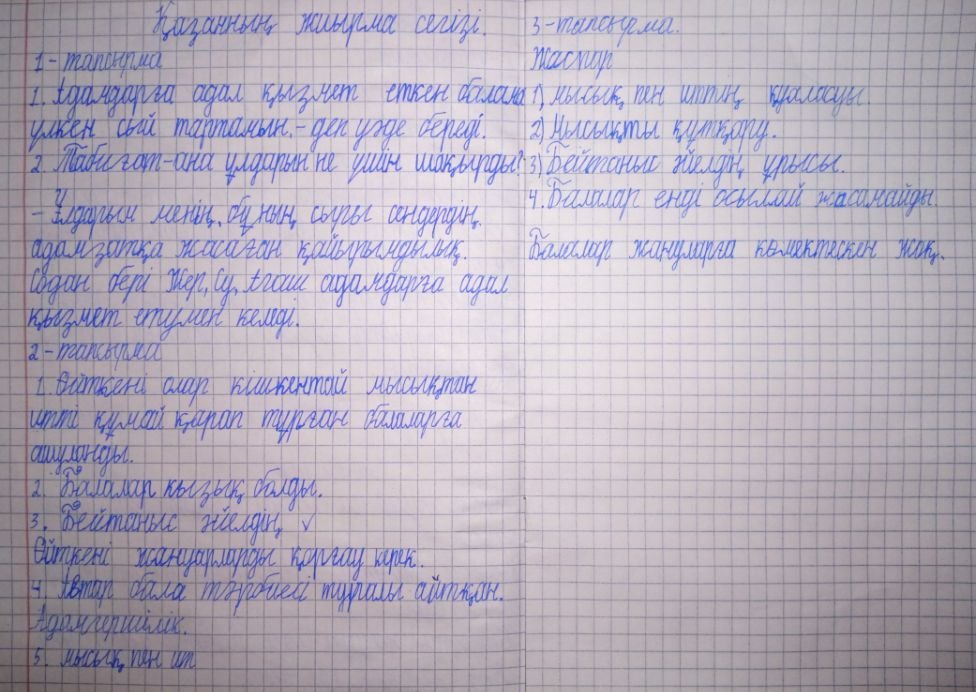 Қазанның жиырма сегізі.
1-тапсырма
1. Адамдарға адал қызмет еткен балама
үлкен сый тартамын.-деп уәде береді.
2. Табиғат-ана ұлдарын не үшін шақырды?
- Ұлдарым менің, бұның сыры сендердің
адамзатқа жасаған қайырымдылық.
Содан бері Жер, Су, Ағаш адамдарға адал
қызмет етумен келеді.
2-тапсырма
1. Өйткені олар кішкентай мысықтан
итті құмай қарап тұрған балаларға
ашуланды.
2. Балалар қызық болды.
3. Бейтаныс әйелдің ✓
Өйткені жануарларды қорғау керек.
4. Автар бала тәрбиесі туралы айтқан.
Адамгершілік.
5. мысық пен ит
3-тапсырма.
Жаспар
1) мысық пен иттің қуаласуы.
2) Мысықты құтқару.
3) Бейтаныс әйелдің ұрысы.
4. Балалар енді осылай жасамайды.
Балалар жануларға көмектескен жоқ.